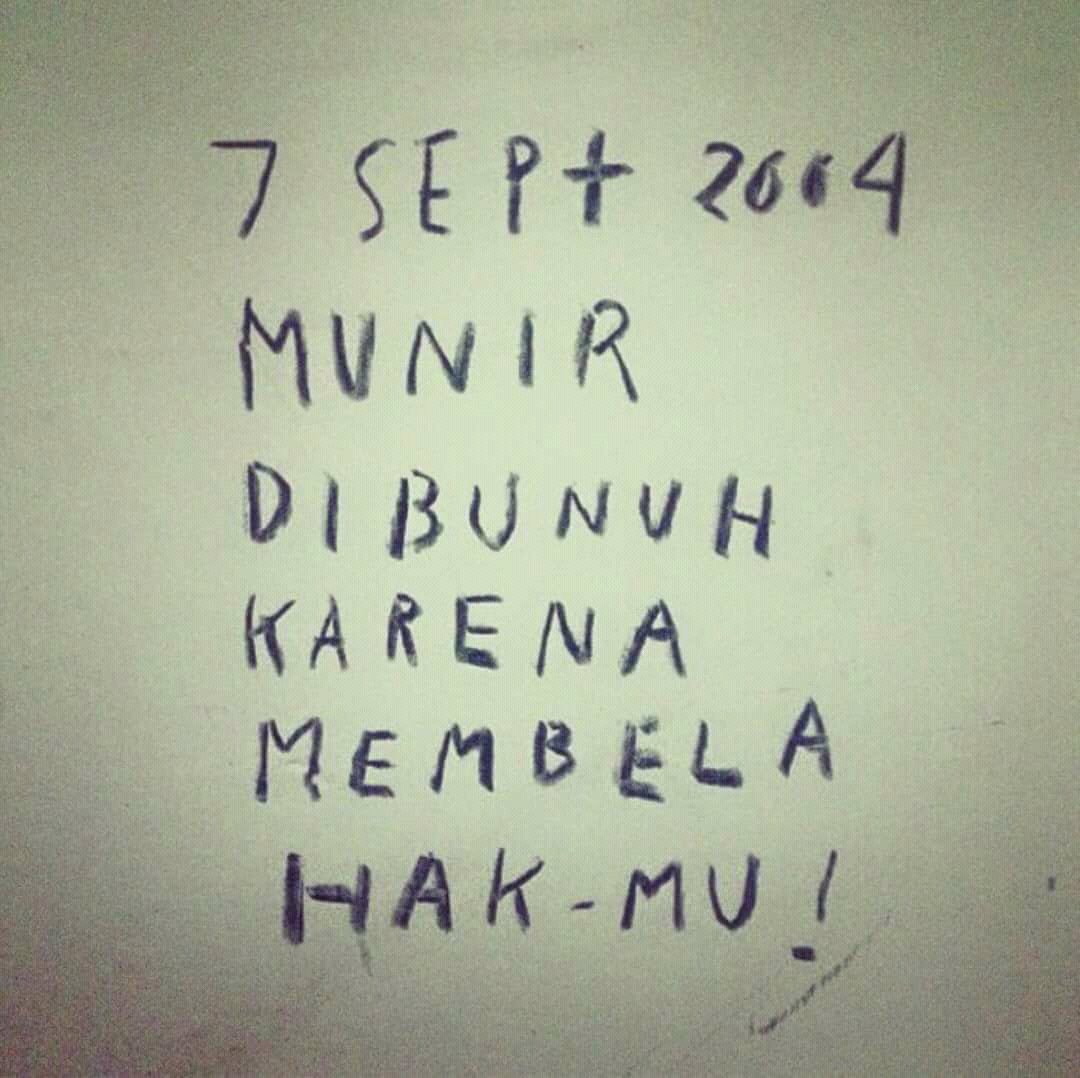 7 SEPT 2004
MUNIR
DIBUNUH
KARENA
MEMBELA
HAK-MU!